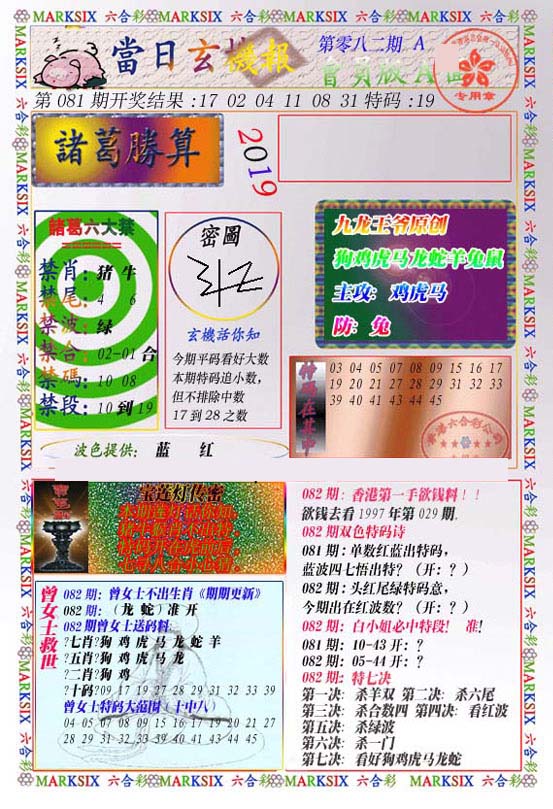 MARKSIX 六合彩 MARKSIX 六合彩 MARKSIX 六合彩 MARKSIX
當日玄機報
第零八二期 A
會員版A面
专用章
第081期开奖结果:17 02 04 11 08 31特码:19
諸葛勝算
2019
諸葛六大禁
禁肖:猪 牛
禁尾:4 6
禁波:绿
禁合:02-01合
禁碼:10 08
禁段:10到19
密圖
玄機话你知
今期平码看好大数
本期特码追小数,
但不排除中数
17到28之数
九龙王爷原创
狗鸡虎马龙蛇羊兔鼠
主攻: 鸡虎马
防: 兔
特碼在其中
03 04 05 07 08 09 15 16 17
19 20 21 27 28 29 31 32 33
39 40 41 43 44 45
波色提供: 蓝 红
宝莲灯传密
082期:香港第一手欲钱料!!
欲钱去看1997年第029期.
082期双色特码诗
081期:单数红蓝出特码,
蓝波四七悟出特?(开:?)
082期:头红尾绿特码意,
今期出在红波数?(开:?)
082期:白小姐必中特段! 准!
081期:10-43开:?
082期:05-44开:?
082期:特七决
第一决: 杀羊双 第二决: 杀六尾
第三决: 杀合数四 第四决: 看红波
第五决: 杀绿波
第六决: 杀一门
第七决: 看好狗鸡虎马龙蛇
曾女士救世
082期:曾女士不出生肖《期期更新》
082期:(龙 蛇)准开
082期曾女士送码料:
?七肖?狗 鸡 虎 马 龙 蛇 羊
?五肖?狗 鸡 虎 马 龙
?二肖?狗 鸡
?十码?09 17 19 27 28 29 31 32 33 39
曾女士特码大范围(十中八)
04 05 07 08 09 15 16 17 19 20 21 27
28 29 31 32 33 39 40 41 43 44 45
MARKSIX 六合彩 MARKSIX 六合彩 MARKSIX 六合彩 MARKSIX